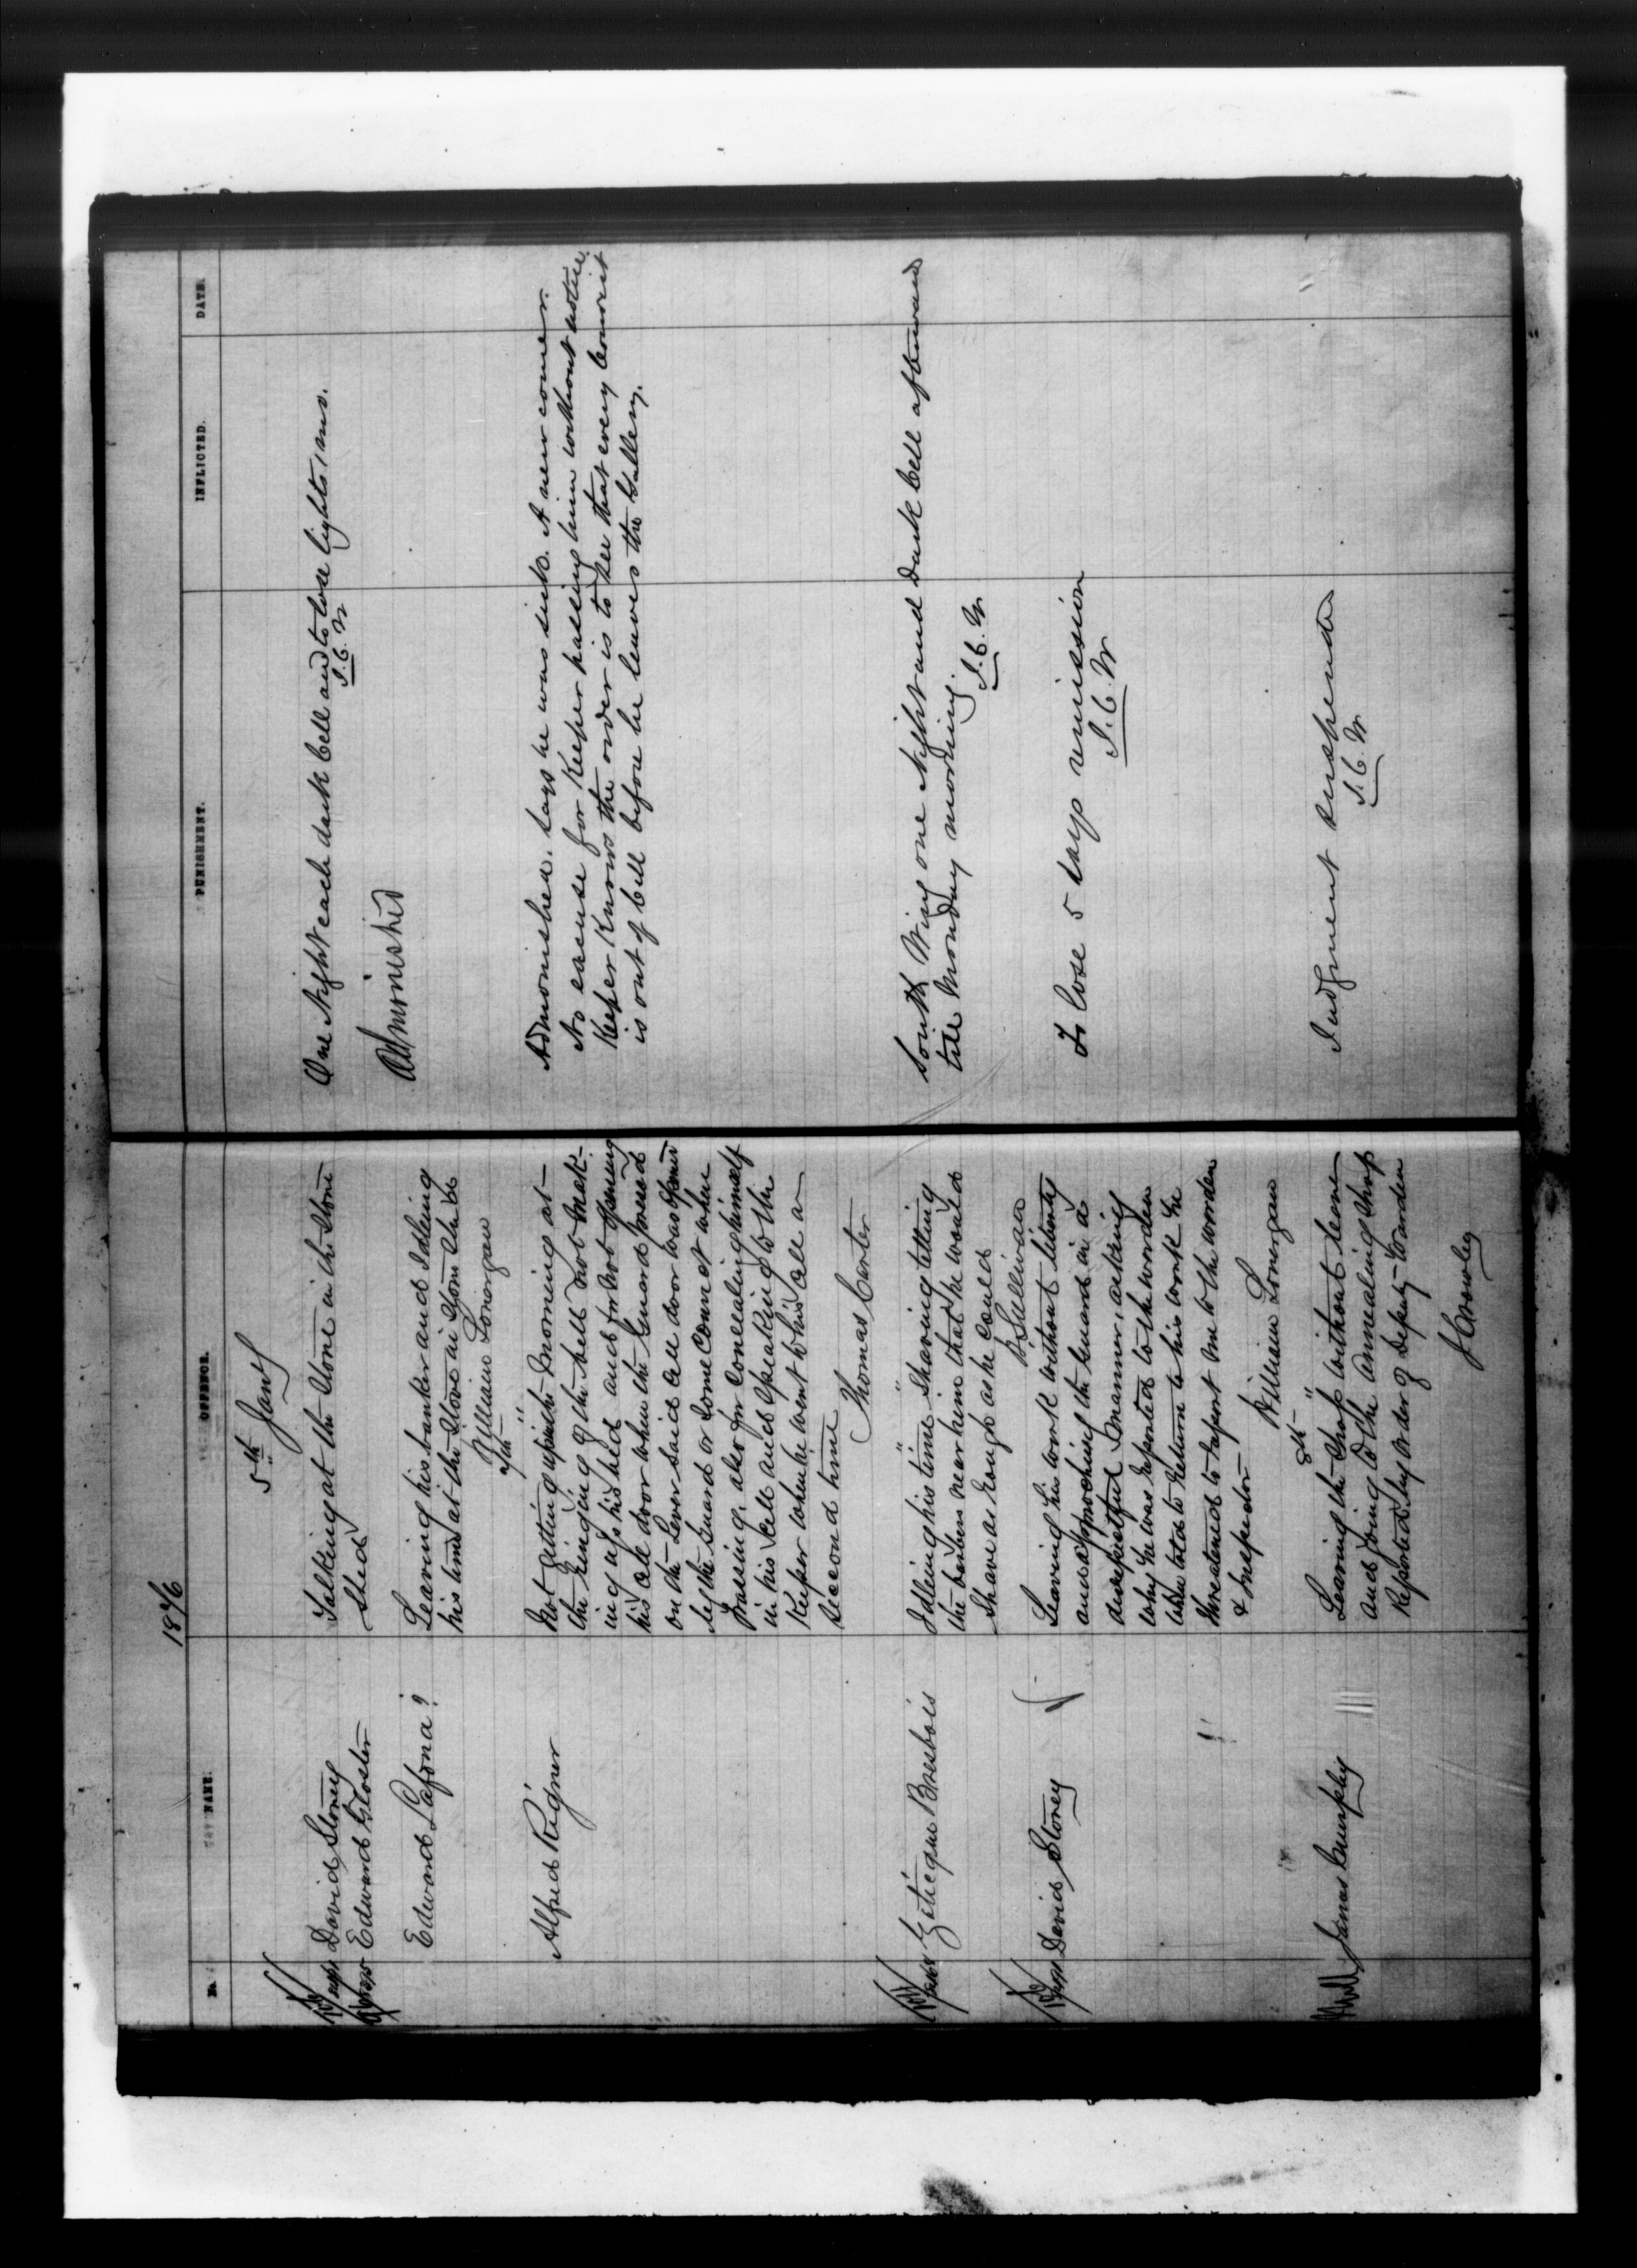 1876
No. NAME. OFFENCE. PUNISHMENT. INFLICTED. DATE.
5th Jany
David Stoney
Edward Gloster
Talking at the Stone in the Stone
Shed
One Night each dark Cell and to lose lights 1 mo.
J. C. W
Edward Lafona?
Leaving his banker and Idleing
his time at the Stove in Stone Shed
William Lonergan
Admonished
7th "
Alfred Rigner
Not getting up in the Morning at
the Ringing of the bell Not Mak-
ing up his bed and for Not Opening
his Cell door when the Guard pressed
on the Lever said Cell door was opened
by the Guard or Some Convict when
passing, also for Concealing himself
in his Cell and Speaking to the
Keeper when he went to his Cell a
Second time
Thomas Carter
Admonished. Says he was sick. A new comer.
No excuse for Keeper passing him without notice.
Keeper Knows the order is to see that every Convict
is out of Cell before he leaves the Gallery.
" "
Brisbois
Idleing his time Shaving telling
the barbers near him that he would
Shave as Rough as he Could
B Sullivan
South Wing one Night and dark Cell afterward
till Monday morning.
J. C. W
David Stoney
Leaving his work without liberty
and approching the Guard in a
disrespectful Manner, asking
why he was Reported to the Warden
When told to Return to his work he
threatened to Report me to the Warden
& Inspector
William Lonergan
To lose 5 days remission
J. C. W
8th "
James Cumphy
Leaving the Shop without leave
and going to the Annealing Shop
Reported by Order of Deputy Warden
J Crowley
Judgment suspended
J. C. W